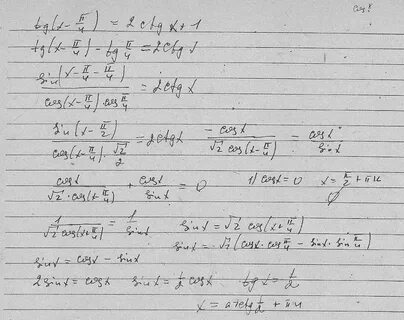 tg(x - π/4) = 2ctg x + 1
tg(x - π/4) - tg π/4 = 2ctg x
sin(x - π/4 - π/4) / (cos(x - π/4) cos π/4) = 2ctg x
sin(x - π/2) / (cos(x - π/4) · √2/2) = 2ctg x    -cos x / (√2 cos(x - π/4)) = cos x / sin x
cos x / (√2 · cos(x - π/4)) + cos x / sin x = 0    1) cos x = 0    x = π/2 + πn
1 / (√2 cos(x + π/4)) = 1 / sin x    sin x = √2 cos(x + π/4)
sin x = √2 (cos x · cos π/4 - sin x · sin π/4)
sin x = cos x - sin x
2 sin x = cos x    sin x = 1/2 cos x    tg x = 1/2
x = arctg 1/2 + πn